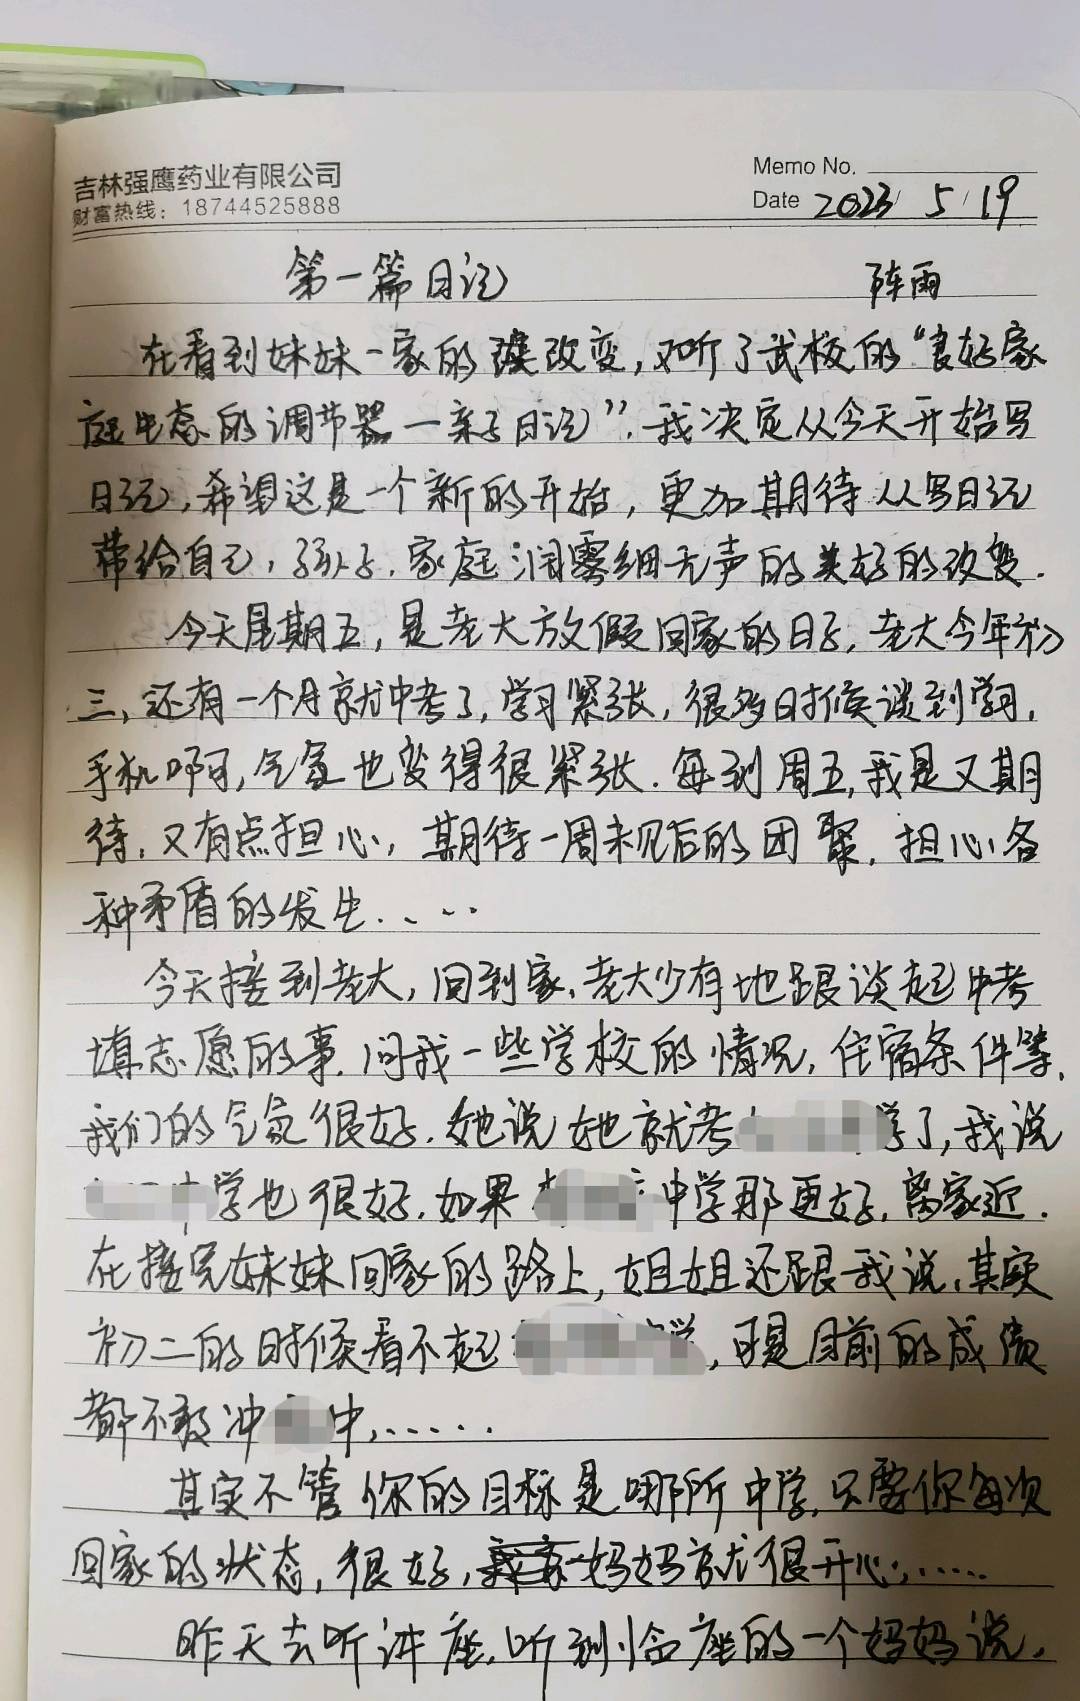 吉林强鹰药业有限公司
财富热线：18744525888
Memo No.
Date 2023/ 5 / 19
第一篇日记 阵雨
在看到妹妹一家的改变,又听了武校的“良好家
庭生态的调节器一亲子日记”.我决定从今天开始写
日记,希望这是一个新的开始,更加期待从写日记
带给自己,孩子.家庭润雾细无声的美好的改变.
今天星期五,是老大放假回家的日子,老大今年初
三,还有一个月就中考了,学习紧张,很多时候谈到学习,
手机啊,气氛也变得很紧张.每到周五,我是又期
待,又有点担心,期待一周未见后的团聚.担心各
种矛盾的发生.....
今天接到老大,回到家,老大少有地跟谈起中考
填志愿的事.问我一些学校的情况,住宿条件等.
我们的气氛很好.她说她就考 学了,我说
中学也很好.如果 中学那更好,离家近.
在接完妹妹回家的路上,姐姐还跟我说,其实
初二的时候看不起 ,可是目前的成绩
都不敢冲 中,.....
其实不管你的目标是哪所中学,只要你每次
回家的状态,很好,妈妈就很开心,.....
昨天去听讲座,听到临座的一个妈妈说,